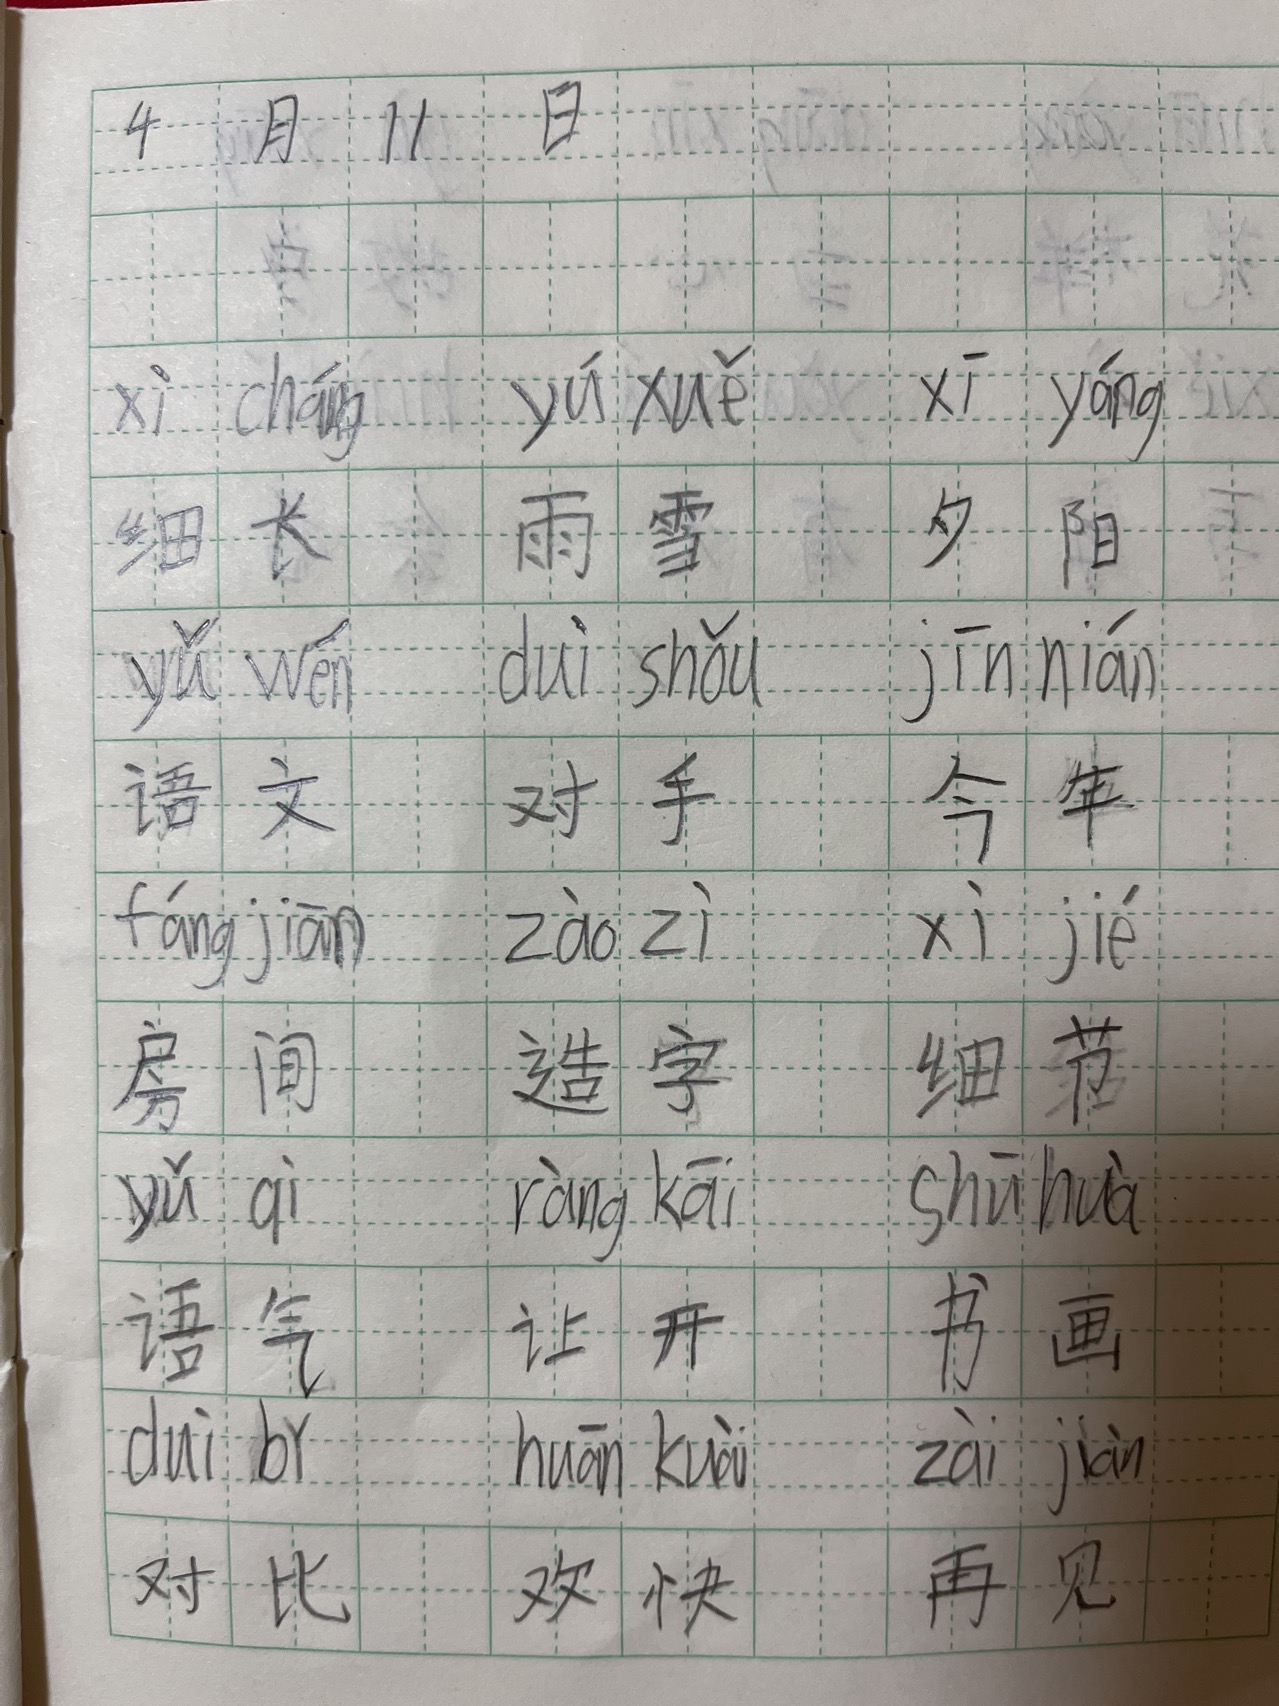 4 月 11 日
xì cháng yú xuě xī yáng
细 长 雨 雪 夕 阳
yǔ wén duì shǒu jīn nián
语 文 对 手 今 年
fáng jiān zào zì xì jié
房 间 造 字 细 节
yǔ qì ràng kāi shū huà
语 气 让 开 书 画
duì bǐ huān kuài zài jiàn
对 比 欢 快 再 见